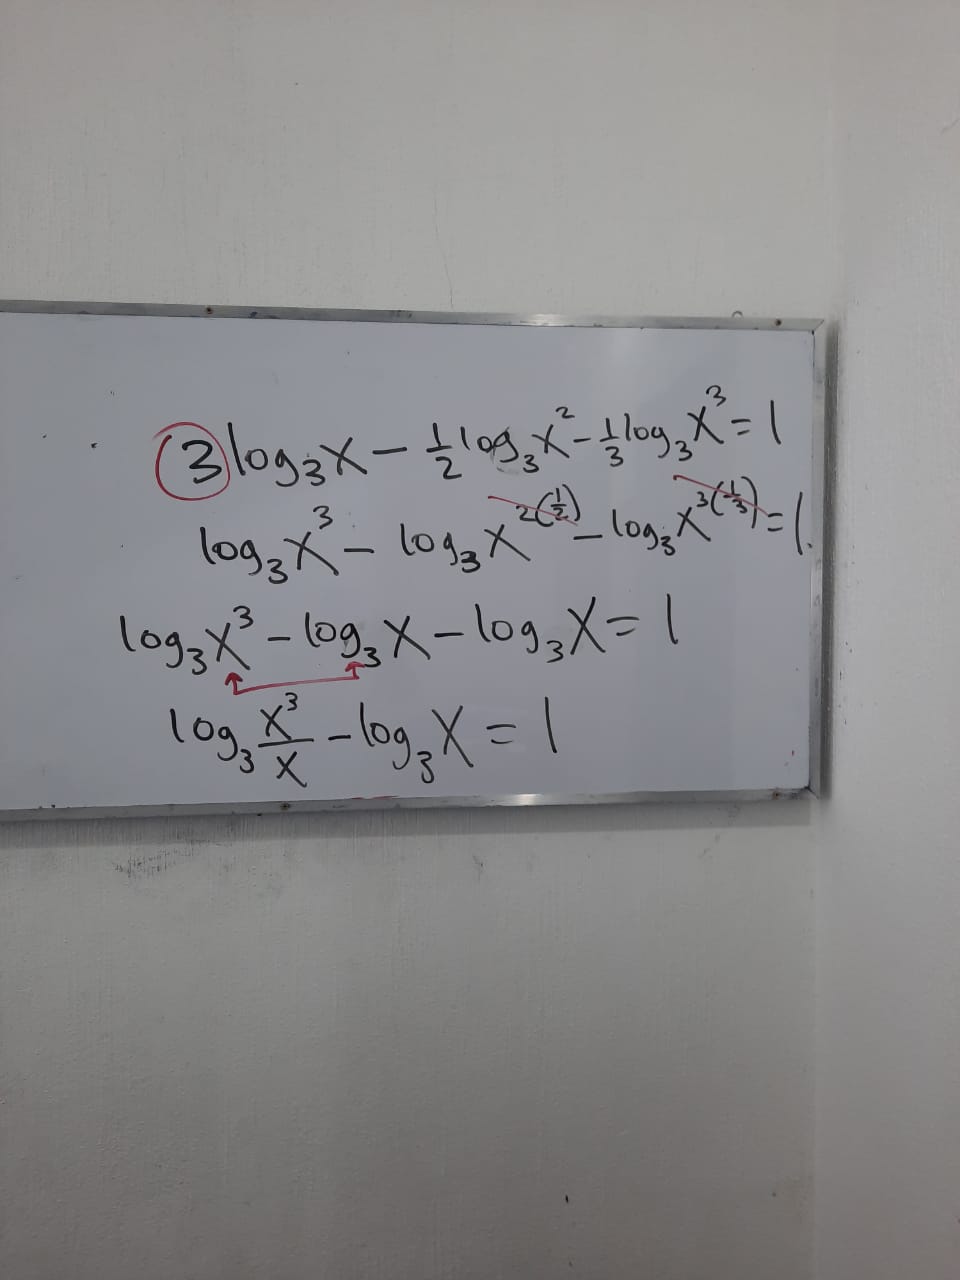 3log₃x − ½log₃x² − ⅓log₃x³ = 1
log₃x³ − log₃x²⁽½⁾ − log₃x³⁽⅓⁾ = 1.
log₃x³ − log₃x − log₃x = 1
log₃ x³/x − log₃x = 1